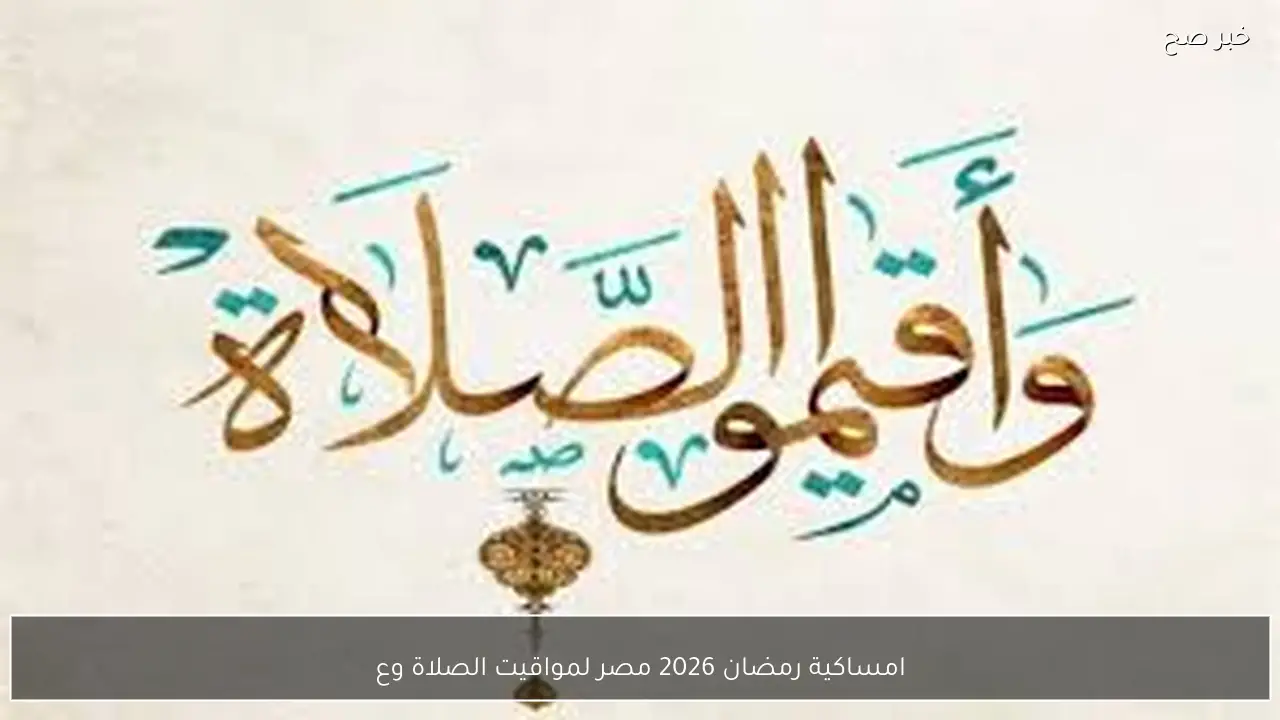 خبر صح
وَأَقِيمُوا الصَّلَاةَ
امساكية رمضان 2026 مصر لمواقيت الصلاة وع